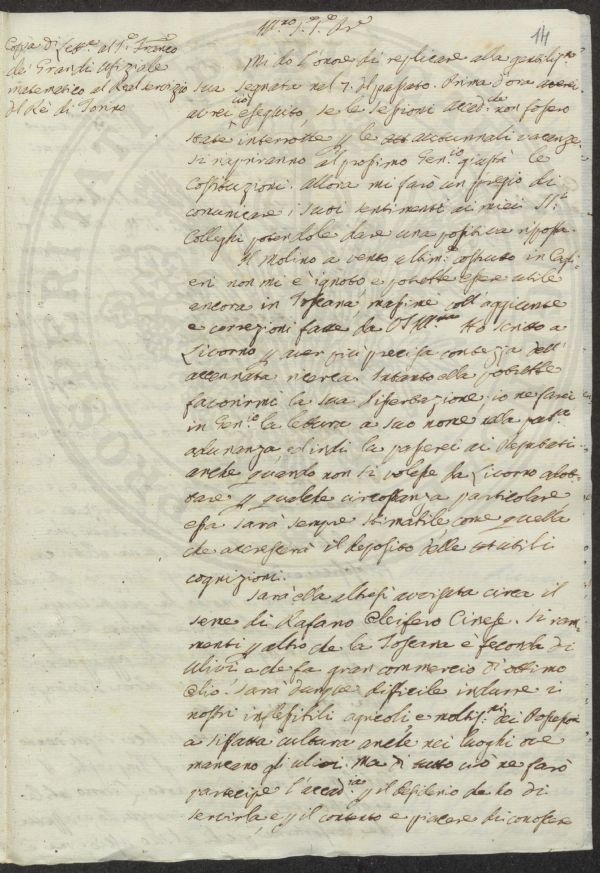 14
Copia di Lett.ra al S.r Franco
de' Grandi Ufiziale
matematico al Real servizio
del Re di Torino
Ill.mo S.r S.r P.ne
Mi do l'onore di replicare alla gentilis.ma
sua segnata nel 7. del passato. Prima d'ora
avrei ciò eseguito, se le sessioni Accad.che non fosero
state interrotte p le autunnali vacanze.
Si riapriranno al prossimo Gen.io giusta le
Costituzioni. allora mi farò un pregio di
comunicare i suoi sentimenti ai miei SS.ri
Colleghi potendole dare una positiva risposta.
Il Molino a vento ultim.e costruito in
non mi è ignoto e potrebbe essere utile
ancora in Toscana massime coll'aggiunte
e correzioni fatte da VS Ill.ma Ho scritto a
Livorno p aver più precisa contezza dell'
accennata ricerca. Intanto ella potrebbe
favorirmi la sua Dissertazione; io ne farei
in Gen.io la lettura a suo nome nella
adunanza ed indi la passerei ai Deputati.
anche quando non si volesse da Livorno adot-
tare p qualche circostanza particolare
essa sarà sempre stimabile come quella
che accrescerà il deposito delle utili
cognizioni.
Sarà ella altresì avvisata circa il
seme di Rafano Oleifero Cinese. Si ram-
menti p altro che la Toscana è feconda di
Ulivi e che fa gran commercio d'ottimo
Olio. Sarà dunque difficile indurre i
nostri inflessibili agricoli e moltis.mi dei Possessori
a siffatta cultura anche nei luoghi ove
mancano gli ulivi. Ma di tutto ciò ne farò
partecipe l'Accad.ia p il desiderio che ho di
servirla, e p il contento e piacere di conoscere